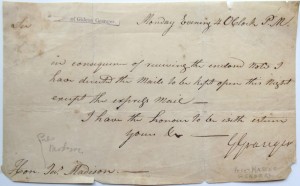 Monday Evening 4 OClock P.M.
Sir
in consequence of receiving the enclosed Note I
have directed the Mails to be kept open this Night
except the express Mail —
I have the honour to be with esteem
yours &c —
GGranger
Honl Jas Madison. —
Madison